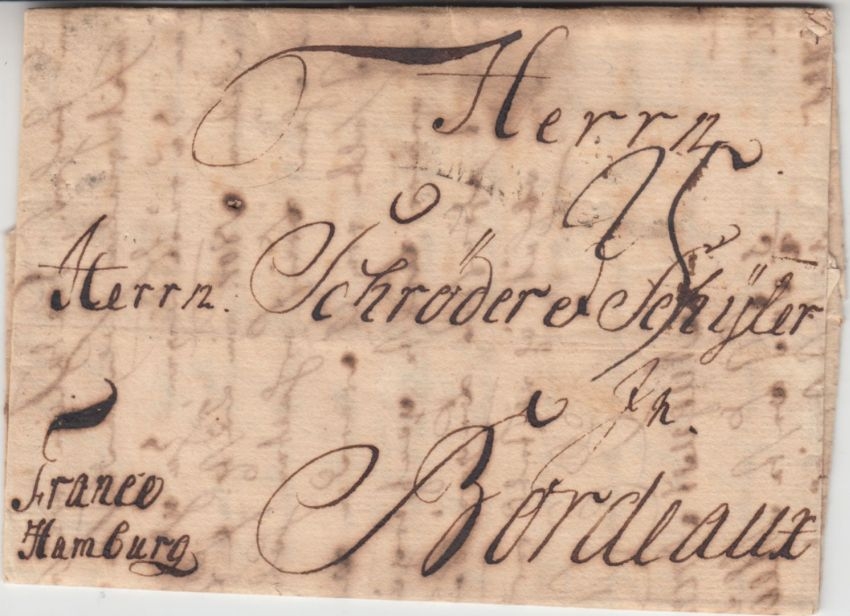 Herrn
25
Herrn. Schröder et Schÿler
In.
Bordeaux
Franco
Hamburg